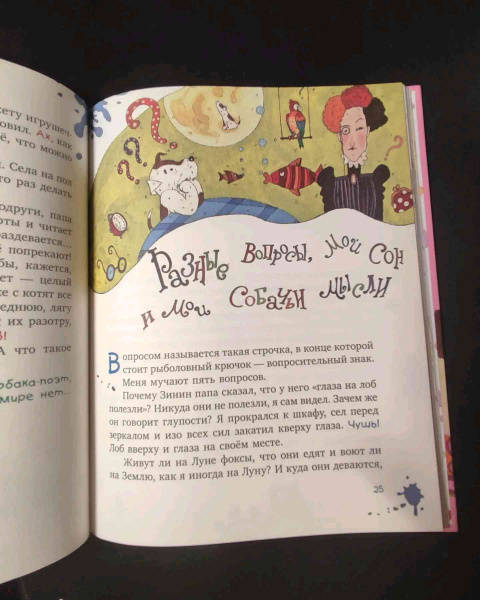 кету игрушеч
овил. Ах, как
ё, что можно
. Села на пол
го раз делать
одруги, папа
оты и читает
раздевается...
ё попрекают!
бы, кажется,
ет — целый
же с котят все
реднюю, лягу
их разотру,
А что такое
обака-поэт,
мире нет...
Разные вопросы, мой сон
и мои собачьи мысли
Вопросом называется такая строчка, в конце которой
стоит рыболовный крючок — вопросительный знак.
Меня мучают пять вопросов.
Почему Зинин папа сказал, что у него «глаза на лоб
полезли»? Никуда они не полезли, я сам видел. Зачем же
он говорит глупости? Я прокрался к шкафу, сел перед
зеркалом и изо всех сил закатил кверху глаза. Чушь!
Лоб вверху и глаза на своём месте.
Живут ли на Луне фоксы, что они едят и воют ли
на Землю, как я иногда на Луну? И куда они деваются,
25